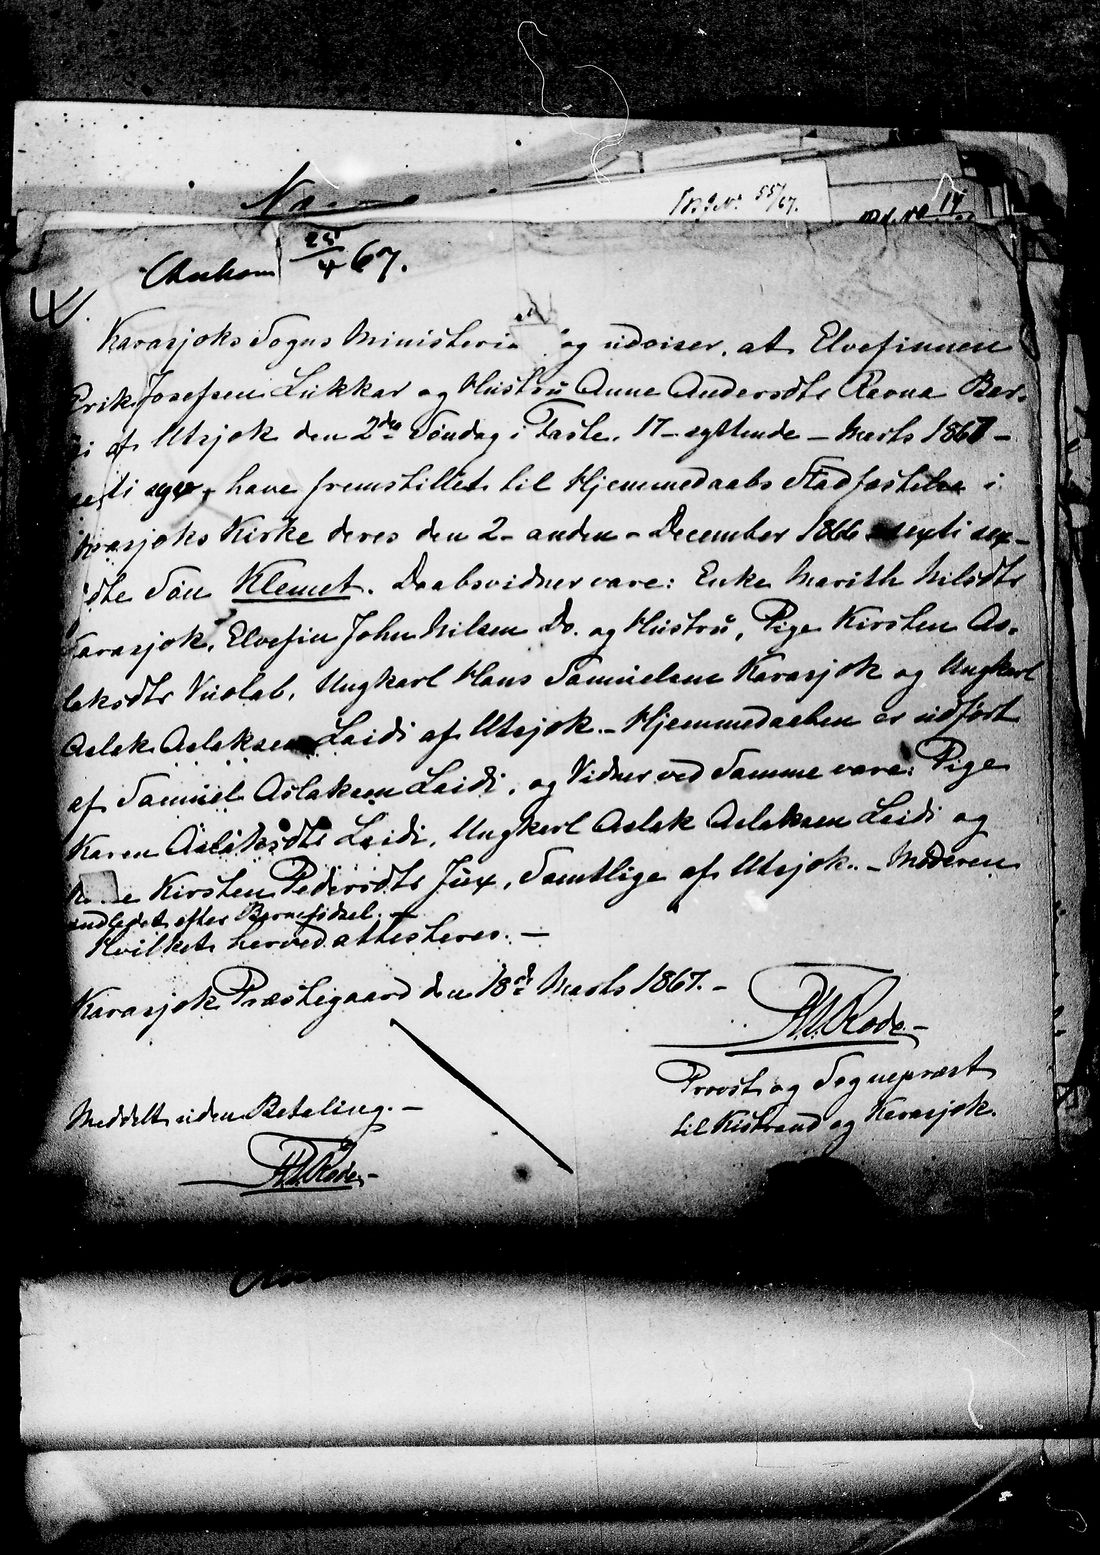 Ankom 25/4 67.
Karasjoks Sogns Ministeria og udviser, at Elvefinnen
Erik Josefsen Lukkar og Hustru Anne Andersdtr Ravna
af Utsjok den 2den Søndag i Faste, 17 - syttende - Marts 1867 -
have fremstillet til Hjemmedaabs Stadfæstelse i
Karasjoks Kirke deres den 2 - anden - December 1866 sexti sex -
fødte Søn Klemet. Daabsvidner vare: Enke Marith Nilsdtr
Karasjok, Elvefin John Nilsen Do. og Hustru, Pige Kirsten As-
laksdtr Vuolab, Ungkarl Hans Samuelsen Karasjok og Ungkarl
Aslak Aslaksen Laidi af Utsjok. - Hjemmedaaben er udført
af Samuel Aslaksen Laidi, og Vidner ved Samme vare: Pige
Karen Aslaksdtr Laidi, Ungkarl Aslak Aslaksen Laidi og
Kirsten Pedersdtr Jux, Samtlige af Utsjok. - Moderen
indledet efter Barnefødsel. -
Hvilket herved attesteres. -
Karasjok Præstegaard den 18de Marts 1867. -
Rode. -
Provst og Sognepræst
til Kistrand og Karasjok.
Meddelt uden Betaling. -
Rode. -